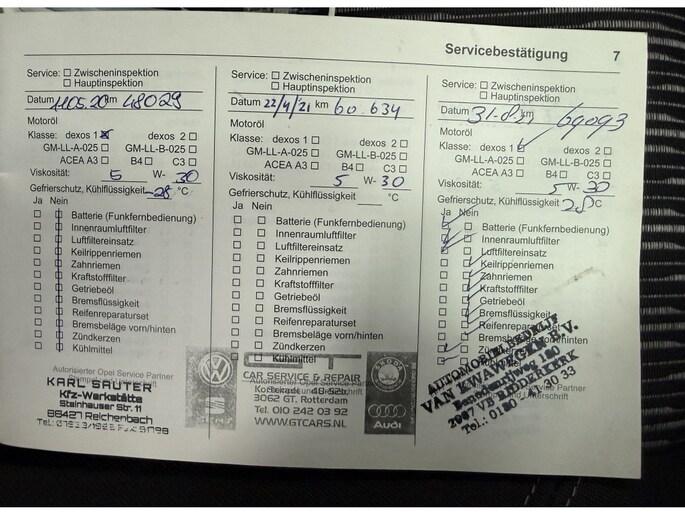 Servicebestätigung 7
Service: ☐ Zwischeninspektion
☐ Hauptinspektion
Datum 11.05.20 km 48029
Motoröl
Klasse: dexos 1 ☒ dexos 2 ☐
GM-LL-A-025 ☐ GM-LL-B-025 ☐
ACEA A3 ☐ B4 ☐ C3 ☐
Viskosität: 5 W- 30
Gefrierschutz, Kühlflüssigkeit -28 °C
Ja Nein
Batterie (Funkfernbedienung)
Innenraumluftfilter
Luftfiltereinsatz
Keilrippenriemen
Zahnriemen
Kraftstofffilter
Getriebeöl
Bremsflüssigkeit
Reifenreparaturset
Bremsbeläge vorn/hinten
Zündkerzen
Kühlmittel
Autorisierter Opel Service Partner
KARL SAUTER
Kfz-Werkstätte
Steinhauser Str. 11
88427 Reichenbach
Service: ☐ Zwischeninspektion
☐ Hauptinspektion
Datum 22/4/21 km 60.634
Motoröl
Klasse: dexos 1 ☐ dexos 2 ☐
GM-LL-A-025 ☐ GM-LL-B-025 ☐
ACEA A3 ☐ B4 ☐ C3 ☐
Viskosität: 5 W- 30
Gefrierschutz, Kühlflüssigkeit °C
Ja Nein
Batterie (Funkfernbedienung)
Innenraumluftfilter
Luftfiltereinsatz
Keilrippenriemen
Zahnriemen
Kraftstofffilter
Getriebeöl
Bremsflüssigkeit
Reifenreparaturset
Bremsbeläge vorn/hinten
Zündkerzen
Kühlmittel
GT
CAR SERVICE & REPAIR
3062 GT. Rotterdam
Tel. 010 242 03 92
WWW.GTCARS.NL
Audi
Service: ☐ Zwischeninspektion
☐ Hauptinspektion
Datum 69093
Motoröl
Klasse: dexos 1 dexos 2 ☐
GM-LL-A-025 ☐ GM-LL-B-025 ☐
ACEA A3 ☐ B4 ☐ C3 ☐
Viskosität: 5 W- 30
Gefrierschutz, Kühlflüssigkeit 28 °C
Ja Nein
Batterie (Funkfernbedienung)
Innenraumluftfilter
Luftfiltereinsatz
Keilrippenriemen
Zahnriemen
Kraftstofffilter
Getriebeöl
Bremsflüssigkeit
Reifenreparaturset
Bremsbeläge vorn/hinten
AUTOMOBIELBEDRIJF